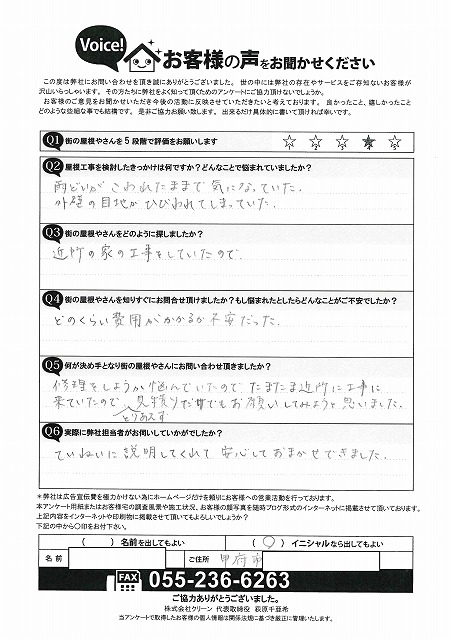 Voice! お客様の声をお聞かせください
この度は弊社にお問い合わせを頂き誠にありがとうございました。 世の中には弊社の存在やサービスをご存知ないお客様が
沢山いらっしゃいます。 その方たちに弊社をよく知って頂くためのアンケートにご協力頂けないでしょうか。
お客様のご意見をお聞かせいただき今後の活動に反映させていただきたいと考えております。 良かったこと、嬉しかったこと
どのような些細な事でも結構です。 是非ご協力お願い致します。 出来るだけ具体的に書いて頂ければ幸いです。
Q1 街の屋根やさんを5段階で評価をお願いします ☆1 ☆2 ☆3 ★4 ☆5
Q2 屋根工事を検討したきっかけは何ですか？どんなことで悩まれていましたか？
雨どいがこわれたままで気になっていた。
外壁の目地がひびわれてしまっていた。
Q3 街の屋根やさんをどのように探しましたか？
近所の家の工事をしていたので。
Q4 街の屋根やさんを知りすぐにお問合せ頂けましたか？もし悩まれたとしたらどんなことがご不安でしたか？
どのくらい費用がかかるか不安だった。
Q5 何が決め手となり街の屋根やさんにお問い合わせ頂きましたか？
修理をしようか悩んでいたので、たまたま近所に工事に
来ていたので、見積りだけでもお願いしてみようと思いました。
とりあえず
Q6 実際に弊社担当者がお伺いしていかがでしたか？
ていねいに説明してくれて安心しておまかせできました。
＊弊社は広告宣伝費を極力かけない為にホームページだけを頼りにお客様への営業活動を行っております。
本アンケート用紙またはお客様宅の調査風景や施工状況、お客様の顔写真を随時ブログ形式のインターネットに掲載させて頂いております。
上記内容をインターネットや印刷物に掲載させて頂いてもよろしいでしょうか？
下記の中から○印をお付下さい。
（ ）名前を出してもよい （○）イニシャルなら出してもよい
名前 ご住所 甲府市
FAX 055-236-6263
ご協力ありがとうございました。
株式会社クリーン 代表取締役 萩原千亜希
当アンケートで取得したお客様の個人情報は関係法規に基づき厳正に管理いたします。